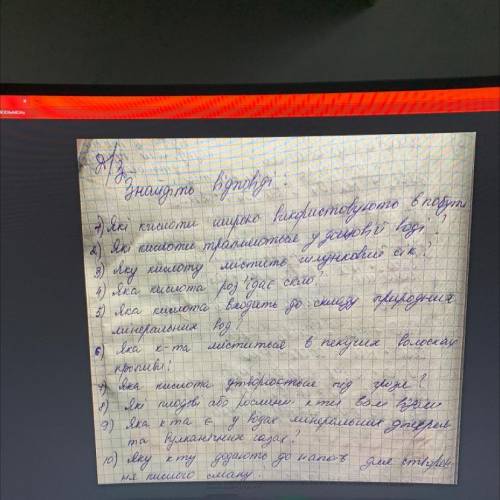 Д/З
Знайдіть відповіді:
1) Які кислоти широко використовують в побуті
2) Які кислоти трапляються у дощовій воді?
3) Яку кислоту містить шлунковий сік?
4) Яка кислота роз'їдає скло?
5) Яка кислота входить до складу природних
мінеральних вод?
6) Яка к-та міститься в пекучих волосках
кропиви?
7) Яка кислота утворюється під грози?
8) Які плодові або рослини к-ти вам відомі
9) Яка к-та є у водах мінеральних джерел
та вулканічних газах?
10) Яку к-ту додають до напоїв для створен
ня кислого смаку.